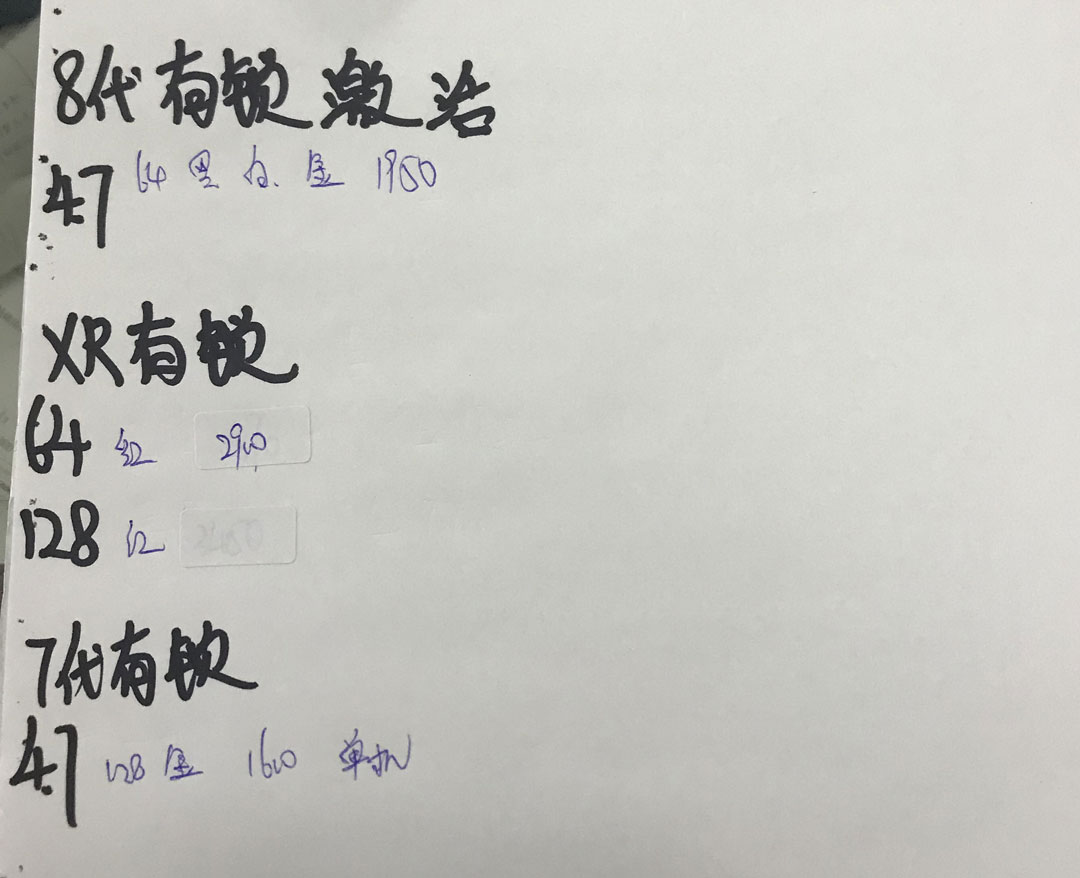 8代有锁激活
4.7 64 黑 白 金 1950
XR有锁
64 红 2900
128 红
7代有锁
4.7 128 金 1600 单机